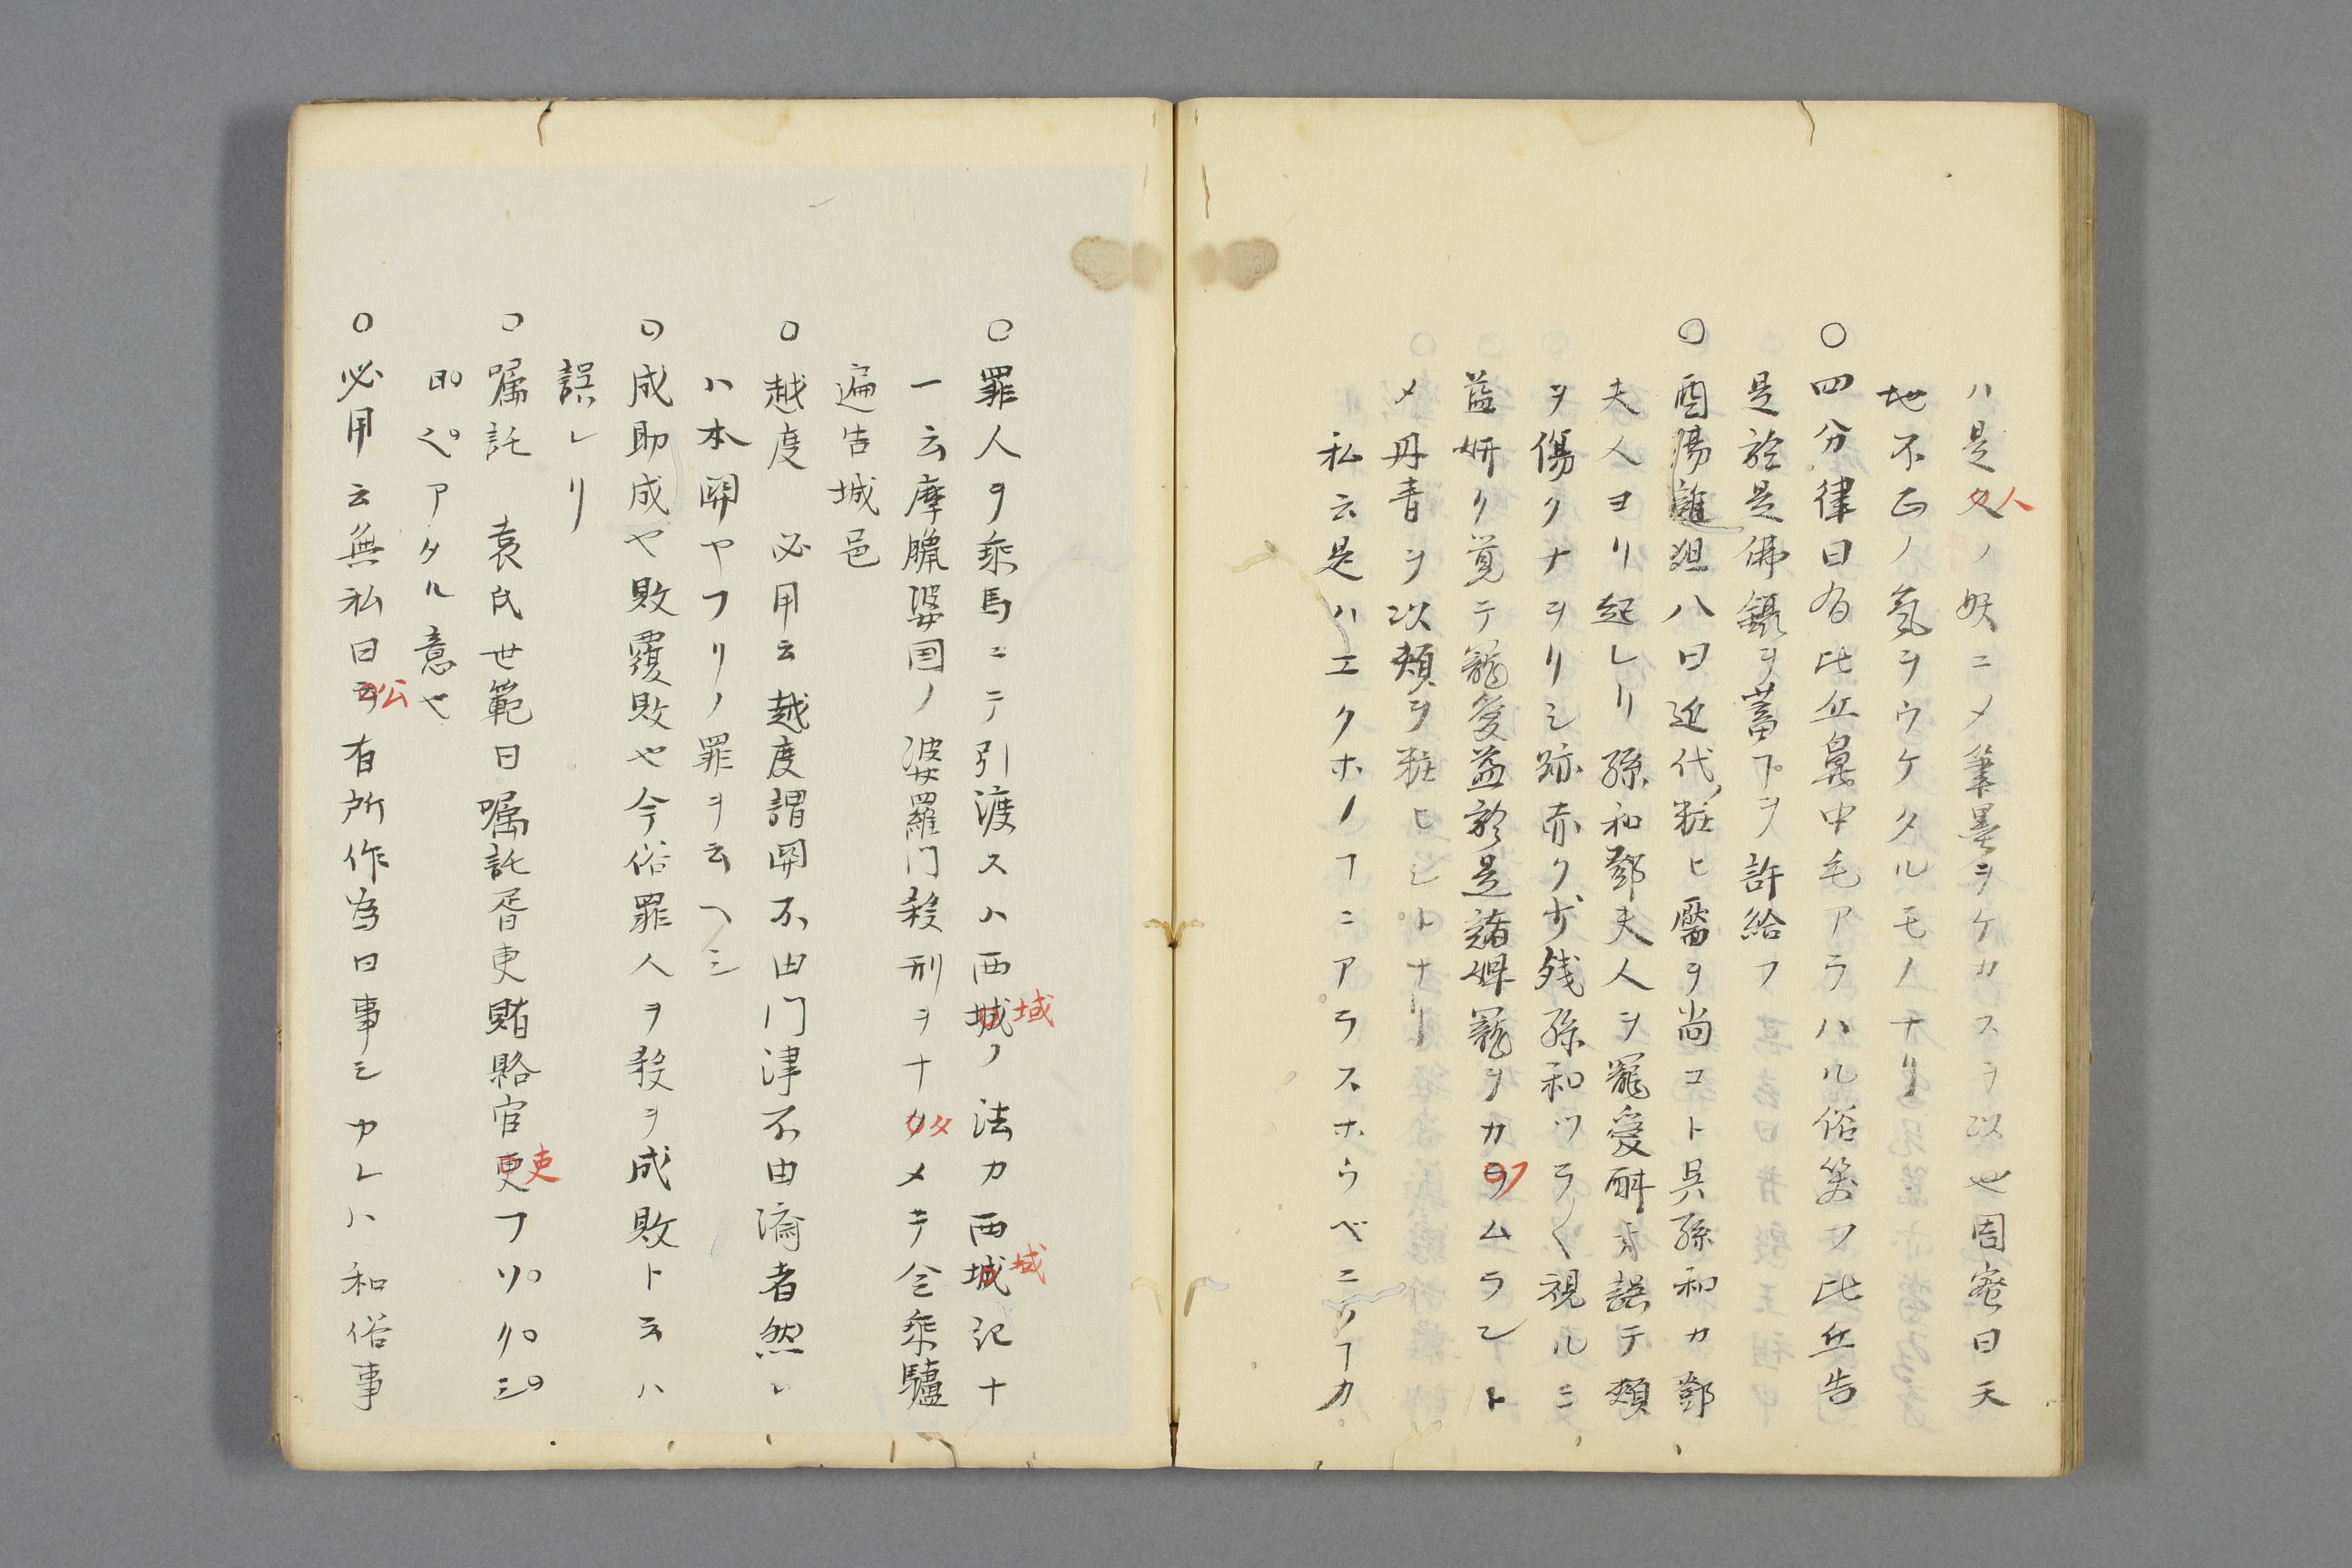 ハ是夂人ノ妖ニメ筆墨ヲケカスヲ以也周密曰天
地不正ノ氣ヲウケタルモノナリ
○四分律曰有比丘鼻中毛アラハル俗笑フ比丘告
是於是佛鑷ヲ蓄フヲ許給フ
○酉陽雜俎八曰近代粧ヒ靨ヲ尚コト呉孫和カ鄧
夫人ヨリ起レリ孫和鄧夫人ヲ寵愛酔テ誤テ頬
ヲ傷クナヲリシ跡赤クヲ残孫和ツラ〱視ルニ
益妍ク覚テ寵愛益於是諸婢寵ヲカヲフムラントメ丹青ヲ以頬ヲ粧ヒシトナリ
私云是ハエクホノヿニアラスホウベニノヿカ
○罪人ヲ乘馬ニテ引渡スハ西城域ノ法カ西城域記十
一云摩臘婆国ノ婆羅門殺刑ヲナカタメキ令乘驢
遍告城邑
○越度 必用云越度謂関不由門津不由濟者然レ
ハ本関ヤフリノ罪ヲ云ヘシ
○成助成や敗覆敗や今俗罪人ヲ殺ヲ成敗ト云ハ
誤レリ
○嘱託 袁氏世範曰嘱託胥吏賄賂官更吏フリリシ
即アタル意や
○必用云無私曰云公有所作為曰事シカレハ和俗事